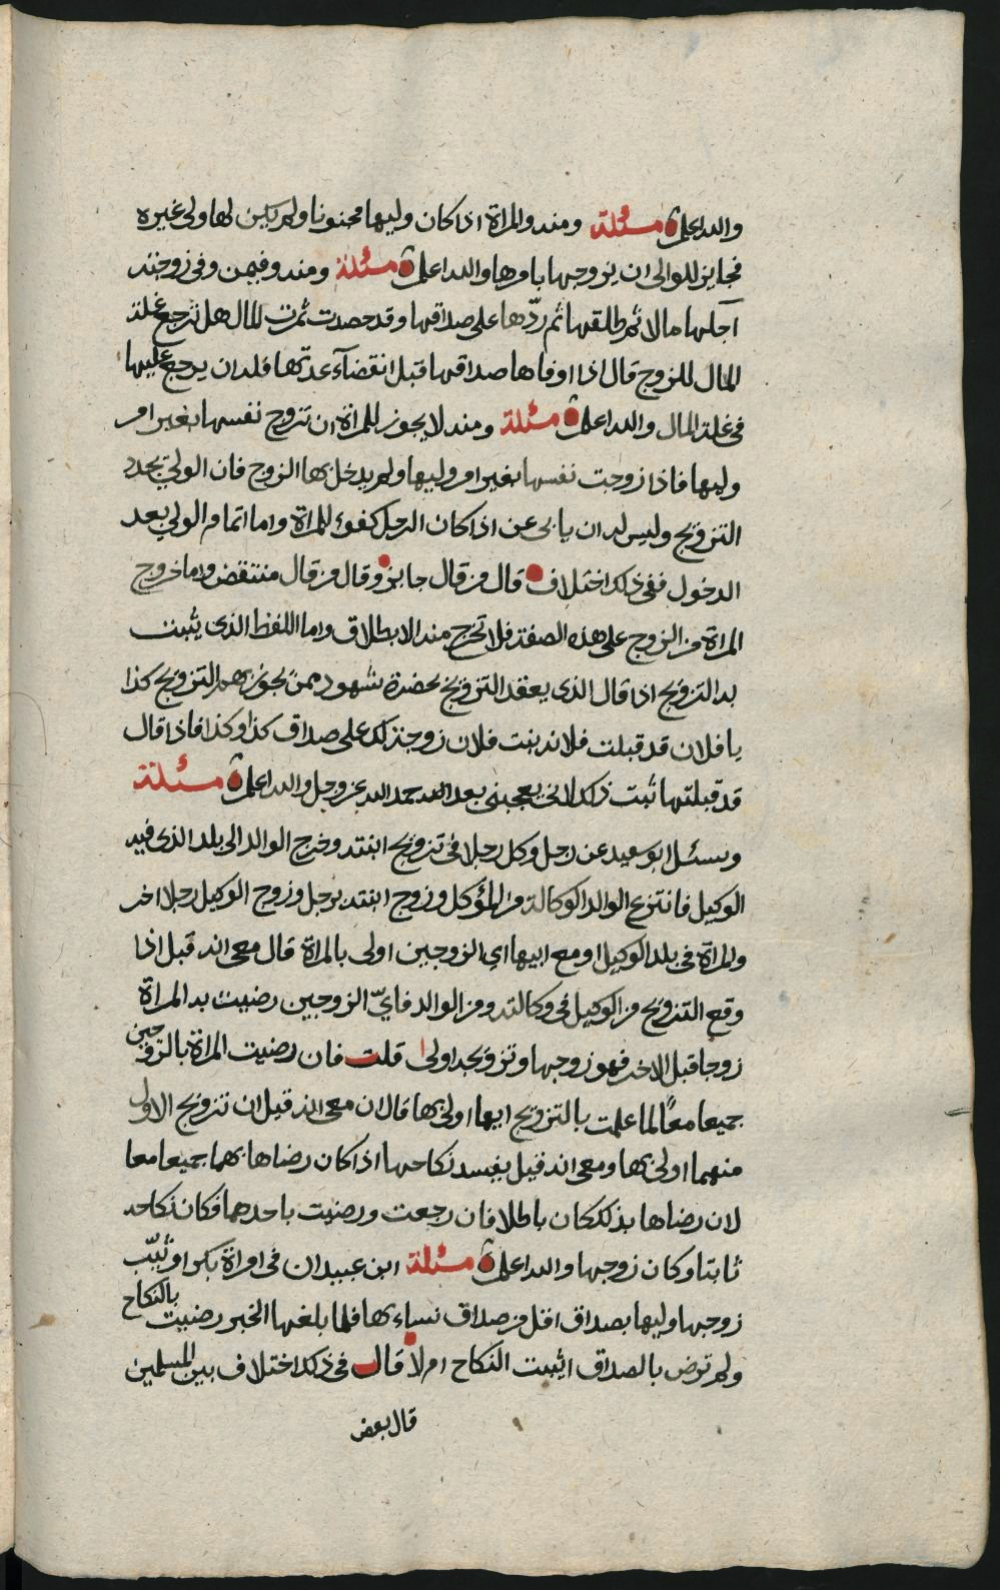 والله اعلم مسئلة ومنه والمراة اذا كان وليها مجنونا ولم يكن لها ولي غيره
فجايز للوالي ان يزوجها بامرها والله اعلم مسئلة ومنه وفيمن وفى زوجته
آجلها مالا ثم طلقها ثم ردّها على صداقها وقد حصدت ثمرت المال هل ترجع غلة
المال للزوج قال اذا اوفاها صداقها قبل انقضآء عدتها فله ان يرجع عليها
فى غلة المال والله اعلم مسئلة ومنه لا يجوز للمراة ان تزوج نفسها بغير امر
وليها فاذا زوجت نفسها بغير امر وليها ولم يدخل بها الزوج فان الولي يجدد
التزويج وليس له ان يابى عن اذا كان الرجل كفوء للمراة واما اتمام الولي بعد
الدخول ففى ذلك اختلاف قال من قال جايز وقال من قال منتقض واما خروج
المراة من الزوج على هذه الصفة فلا تخرج منه الا بطلاق واما اللفظ الذى يثبت
به التزويج اذا قال الذى يعقد التزويج بحضرة شهود ممن يجوز بهم التزويج كذا
يا فلان قد قبلت فلانه بنت فلان زوجة لك على صداق كذا وكذا فاذا قال
قد قبلتها ثبت ذلك لانى يعجبنى بعد حمد الله عز وجل والله اعلم مسئلة
وسئل ابو سعيد عن رجل وكل رجلا فى تزويج ابنته وخرج الوالد الى بلد الذى فيه
الوكيل فانتزع الوالد الوكالة من المؤكل وزوج ابنته برجل وزوج الوكيل رجلا اخر
والمراة فى بلد الوكيل او مع ابيها اي الزوجين اولى بالمراة قال معى انه قيل اذا
وقع التزويج من الوكيل فى وكالته ومن الوالد فايّ الزوجين رضيت به المراة
زوجا قبل الاخر فهو زوجها وتزويجه اولى قلت فان رضيت المراة بالزوجين
جميعا معًا لما علمت بالتزويج ايها اولى بها قال ان معى انه قيل ان تزويج الاول
منهما اولى بها ومعى انه قيل يفسد نكاحها اذا كان رضاها بهما جميعا معا
لان رضاها بذلك كان باطلا فان رجعت ورضيت باحدهما فكان نكاحه
ثابتا وكان زوجها والله اعلم مسئلة ابن عبيدان فى امراة بكر او ثيّب
زوجها وليها بصداق اقل من صداق نساءها فلما بلغها الخبر رضيت بالنكاح
ولم ترض بالصداق ايثبت النكاح ام لا قال فى ذلك اختلاف بين المسلمين
قال بعض